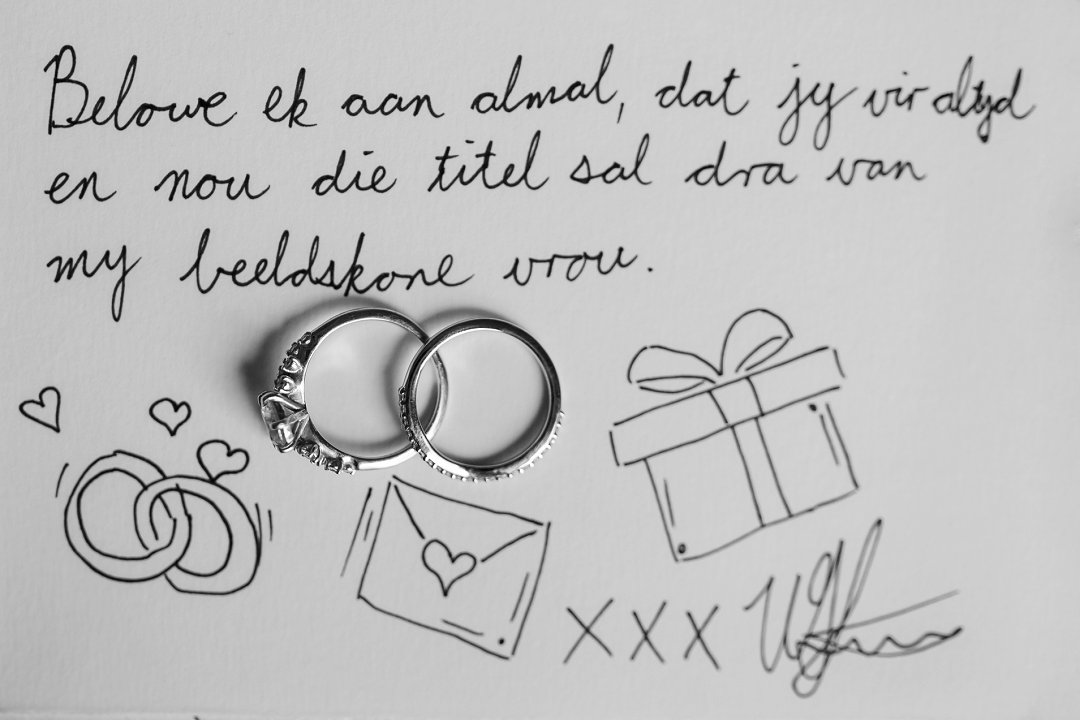 Belowe ek aan almal, dat jy vir altyd
en nou die titel sal dra van
my beeldskone vrou.
XXX